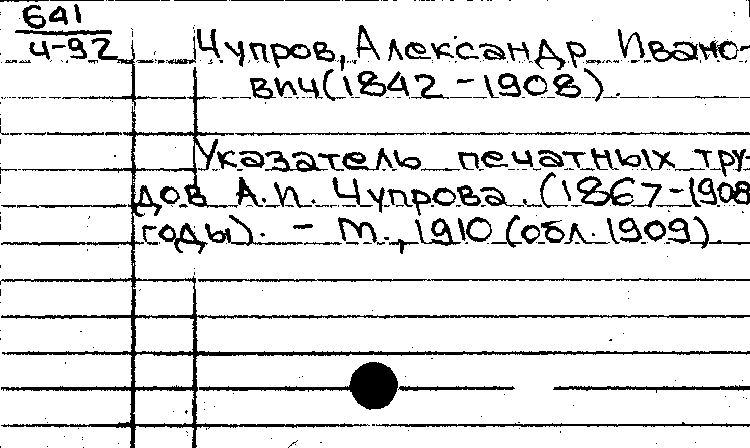 641
Ч-92
Чупров, Александр Ивано-
вич (1842 - 1908).
Указатель печатных тру-
дов А.И. Чупрова. (1867-1908
годы). - М., 1910 (обл. 1909).